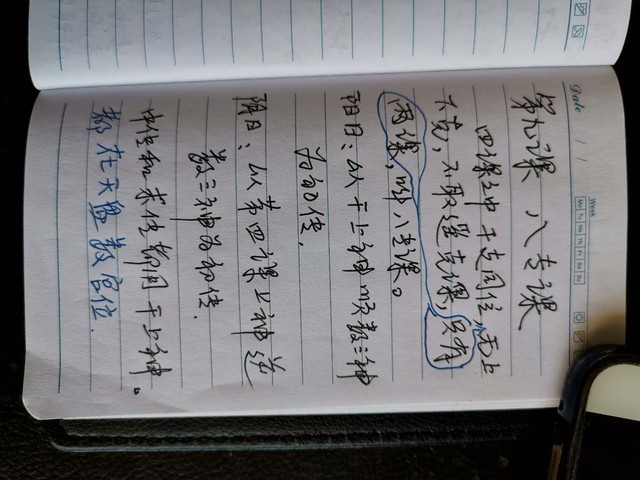 Date
Week
第九课 八专课
四课之中干支同位,无上
不克,不取遥克课,只有
两课,叫八专课。
阳日:以干上神顺数三神
为初传,
阴日:以第四课上神逆
数三神为初传.
中传和末传都用干上神。
都在天盘数宫位.